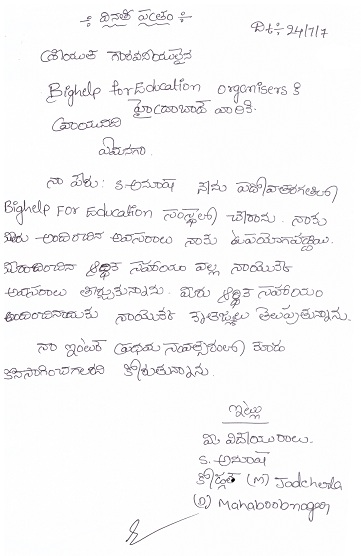 ÷ వినతి పత్రం ÷
Dt:- 24/7/7
శ్రీయుత గౌరవనీయులైన
Bighelp for Education organisers కి
హైదరాబాద్ వారికి.
వ్రాయునది
ఏమనగా.
నా పేరు: S. అనూష నేను పదోవతరగతిలో
Bighelp For Education సంస్థలో చేరాను. నాకు
మీరు అందించిన అవసరాలు నాకు ఉపయోగపడ్డాయి.
మీరందించిన ఆర్థిక సహాయం వల్ల నాయొక్క
అవసరాలు తీర్చుకున్నాను. మీరు ఆర్థిక సహాయం
అందించినందుకు నాయొక్క కృతజ్ఞతలు తెలుపుతున్నాను.
నా ఇంటర్ ప్రథమ సంవత్సరంలో కూడా
కొనసాగించగలరని కోరుతున్నాను.
ఇట్లు
మీ విధేయురాలు.
S. అనూష
(M) Jadcherla
(D) Mahaboobnagar